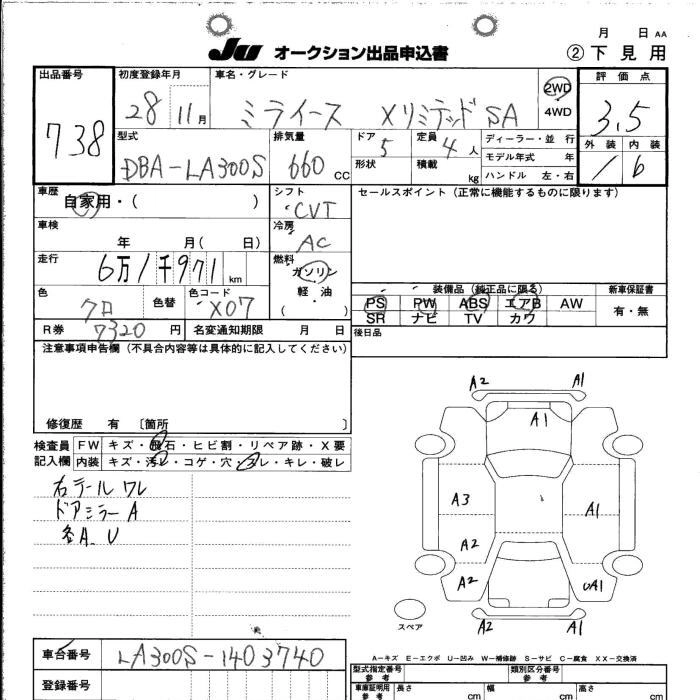 月 日 AA
JU オークション出品申込書 ②下見用
出品番号 738
初度登録年月 28 11月
車名・グレード ミライース Xリミテッド SA
2WD
4WD
評価点 3.5
外装 1 内装 b
型式 DBA-LA300S
排気量 660 CC
ドア 5
形状
定員 4人
積載 kg
ディーラー・並行
モデル年式 年
ハンドル 左・右
車歴 自家用・( )
シフト CVT
セールスポイント (正常に機能するものに限ります)
車検 年 月( 日)
冷房 AC
走行 6万1千971 km
燃料 ガソリン
軽・油
( )
色 クロ 色替 色コード X07
装備品 (純正品に限る) 新車保証書
PS PW ABS エアB AW 有・無
SR ナビ TV カワ
R券 7320円 名変通知期限 月 日
後日品
注意事項申告欄 (不具合内容等は具体的に記入してください)
修復歴 有 〔箇所 〕
検査員 FW キズ・飛石・ヒビ割・リペア跡・X要
記入欄 内装 キズ・汚レ・コゲ・穴・スレ・キレ・破レ
右テールワレ
ドアミラーA
各A.U
A2 A1
A1
A3 A1
A2
A2 UA1
スペア A2 A1
A-キズ E-エクボ U-凹み W-補修跡 S-サビ C-腐食 XX-交換済
車台番号 LA300S-1403740
登録番号
型式指定番号 参考 類別区分番号 参考
車庫証明用 参考 長さ cm 幅 cm 高さ cm